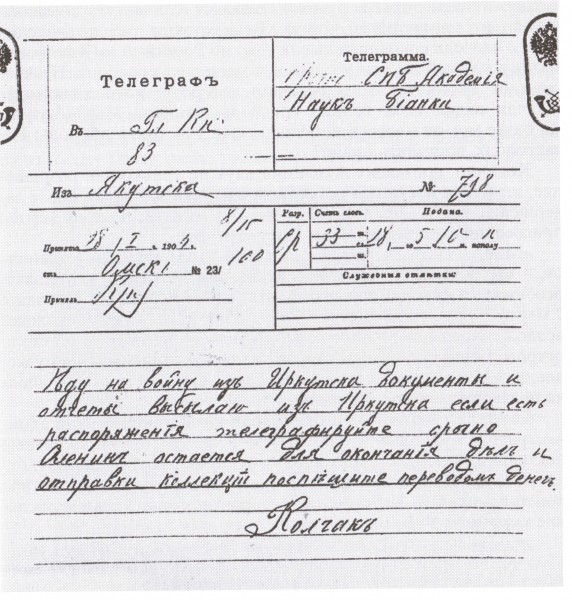 Телеграфъ
Въ Гл Кн
83
Телеграмма.
Срочн СПБ Академія
Наукъ Біанки
Изъ Якутска
№ 798
Принята 28 I ч. 190
8/15
отъ Омскъ № 231
160
Принялъ
Разр.
Счетъ словъ.
Подана.
Ср
33
ш.
сл.
го 5 м. пополу
Служебныя отмѣтки:
Иду на войну изъ Иркутска документы и
отчеты высылаю изъ Иркутска если есть
распоряженія телеграфируйте срочно
Оленинъ остается для окончанія дѣлъ и
отправки коллекцій поспѣшите переводомъ денегъ.
Колчакъ